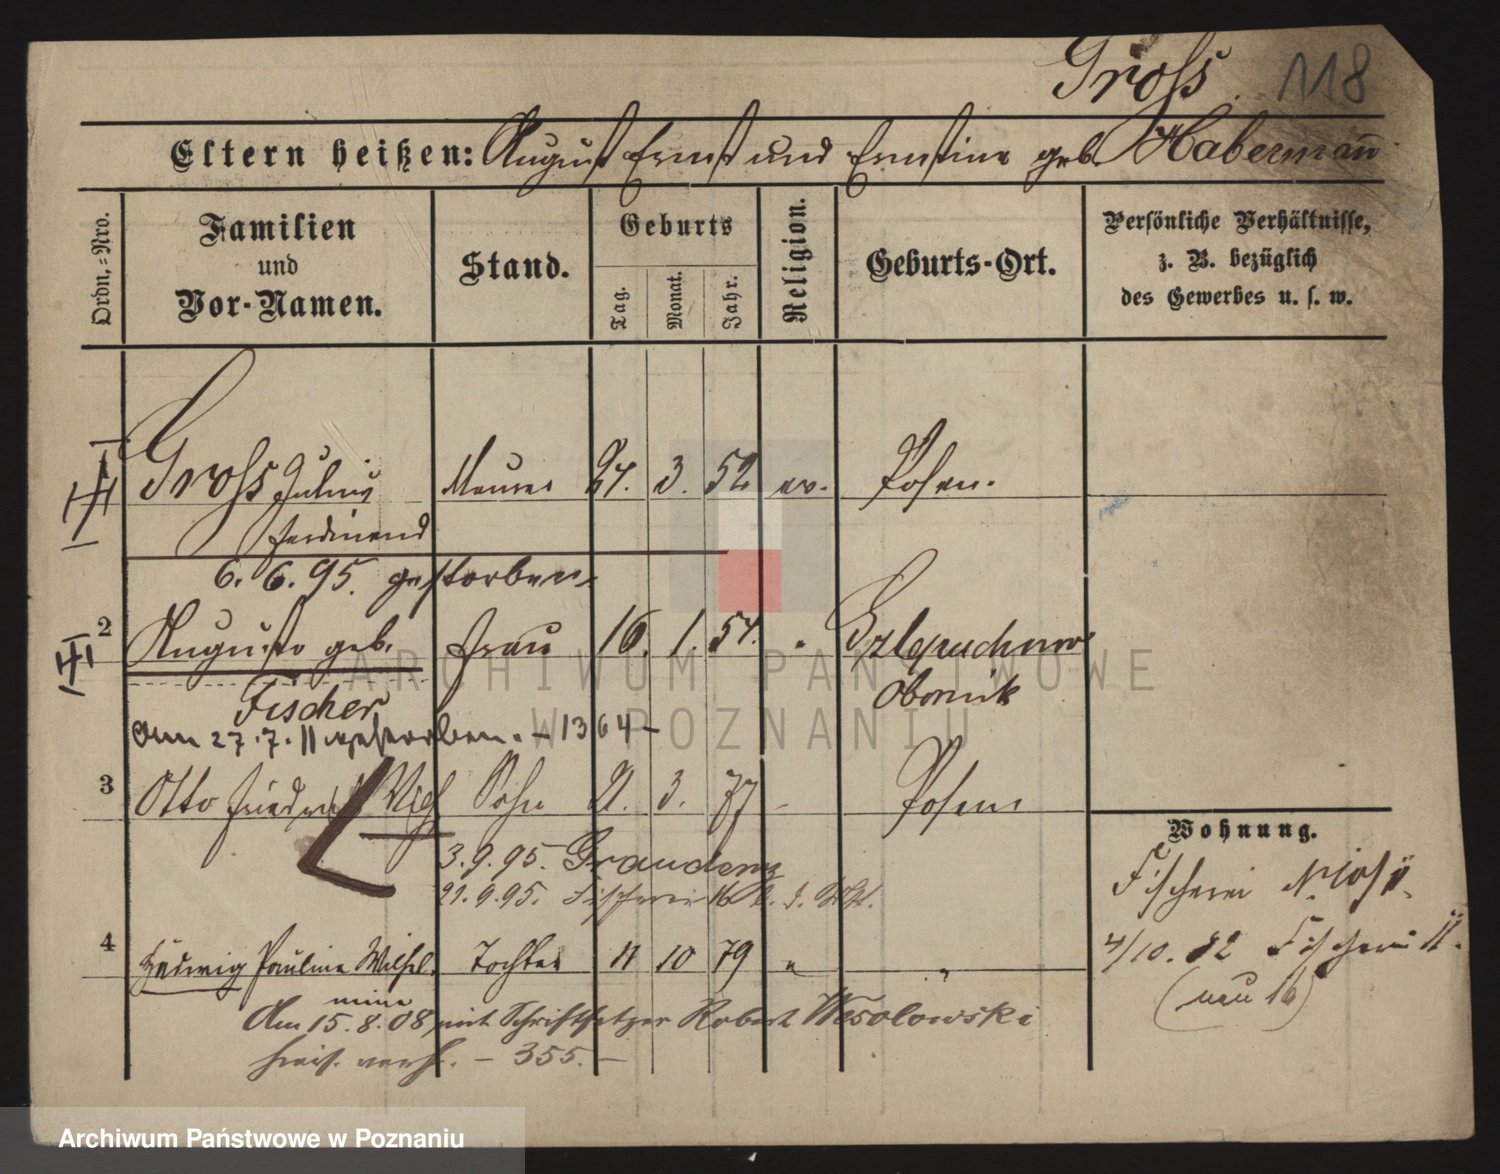 Groß. 118
Eltern heißen: August Ernst und Ernstine geb. Habermañ
Ordn.-Nro.
Familien und Vor-Namen.
Stand.
Geburts
Tag. Monat. Jahr.
Religion.
Geburts-Ort.
Persönliche Verhältnisse,
z. B. bezüglich
des Gewerbes u. s. w.
1 Groß Julius Maurer 27. 3. 52 ev. Posen.
Ferdinand
6. 6. 95. gestorben.
2 Auguste geb. Frau 16. 1. 57. "
Fischer Obornik
am 27. 7. 11 gestorben. – 1364 –
3 Otto Friedrich Sohn 3. 77 Posen
3. 9. 95. Graudenz
21. 9. 95. Fischerei 16
4 Hedwig Pauline Wilhel- Tochter 11 10 79 " "
mine
Am 15. 8. 08 mit Schriftsetzer Robert Wesolowski
hies. verh. – 355. –
Wohnung.
Fischerei
4/10. 82 Fischerei 11.
(neu 16)
ARCHIWUM PAŃSTWOWE
W POZNANIU
Archiwum Państwowe w Poznaniu